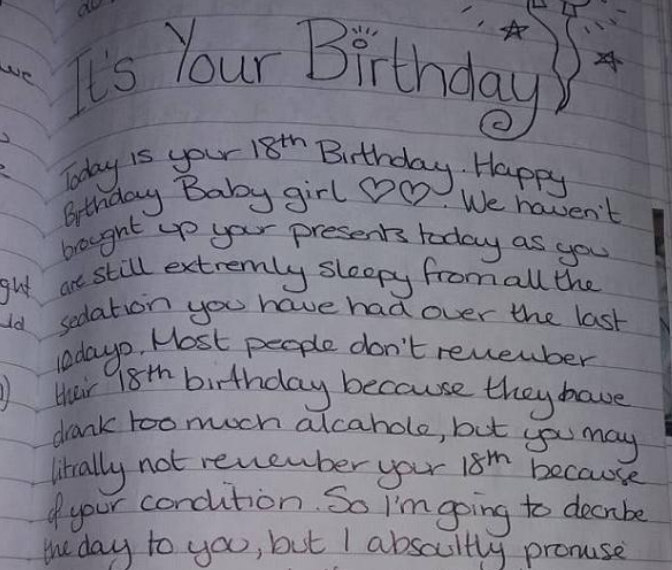 we
It's Your Birthday
Today is your 18th Birthday. Happy
Birthday Baby girl ♡♡. We haven't
brought up your presents today as you
are still extremly sleepy from all the
sedation you have had over the last
10days. Most people don't remember
ght
their 18th birthday because they have
drank too much alcahole, but you may
litrally not remember your 18th because
of your condition. So I'm going to decribe
the day to you, but I absoultly promise